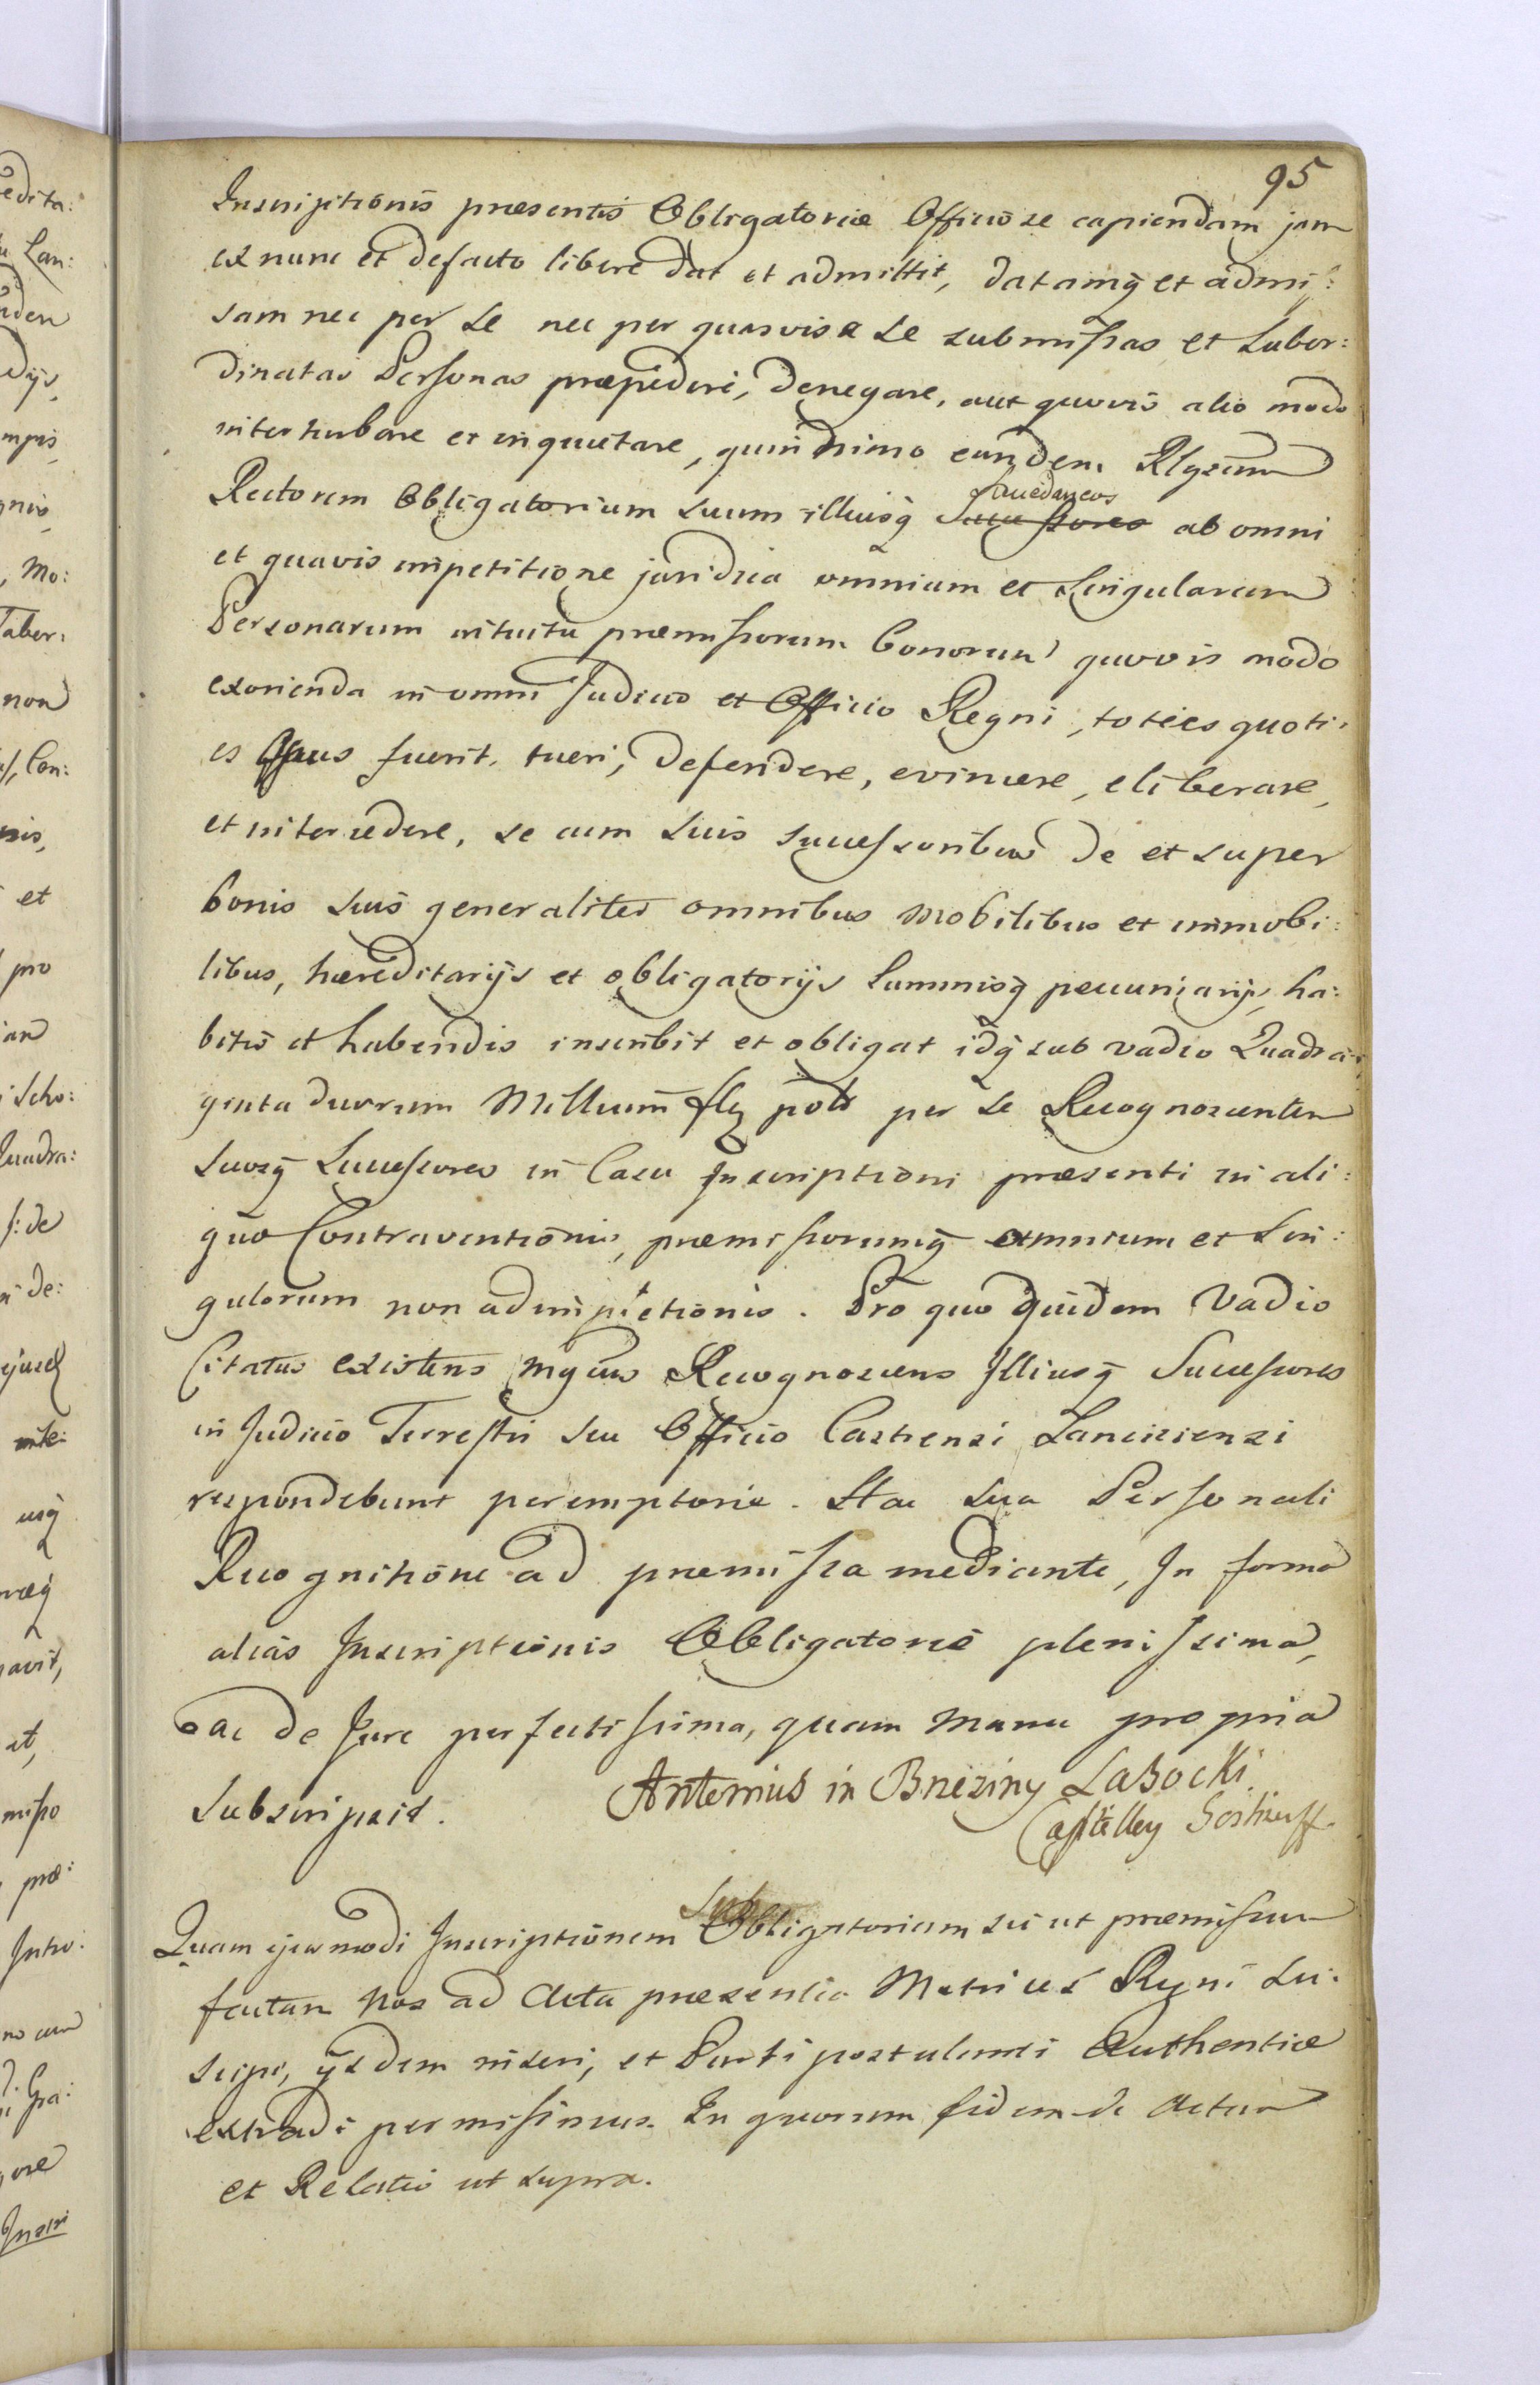 95
Inscriptionis præsentis Obligatoriæ Officiose capiendam jam
ex nunc et defacto libere dat et admittit, datamq̃ et admis:
sam nec per se nec per quasvis a se submissas et subor:
dinatas Personas præpedire, denegare, aut quovis alio modo
inter turbare et inquietare, quin imo eundem Rlgsum
Rectorem Obligatorium suum illiusq̃ Successores succedaneos ab omni
et quavis impetitione juridica omnium et Singularum
Personarum intuitu præmissorum Bonorum quovis modo
exorienda in omni Judicio et Officio Regni, toties quoti:
es Opus fuerit, tueri, defendere, evincere, eliberare,
et intercedere, se cum suis successoribus de et super
bonis suis generaliter omnibus mobilibus et immobi:
libus, hæreditarijs et obligatorijs summisq̃ pecuniarijs, ha:
bitis et habendis inscribit et obligat idq̃ sub vadio Quadra:
ginta duorum Millium flg pol per se Recognoscentem
suosq̃ Successores in Casu Inscriptioni præsenti in ali:
quo Contraventionis, præmissorumq̃ omnium et Sin:
gulorum non adimpletionis. Pro quo quidem Vadio
Citatus existens Mgcus Recognoscens Illiusq̃ Successores
in Judicio Terrestri seu Officio Castrensi Lanciciensi
respondebunt peremptorie. Hac sua Personali
Recognitione ad præmissa mediante, In forma
alias Inscriptionis Obligatoriæ plenissima,
ac de Jure perfectissima, quam manu propria
subscripsit. Antonius in Brzeziny Lasocki
Castelley Sochacff.
Quam ejusmodi Inscriptionem Obligatoriam sic ut præmissum
factam Nos ad Acta præsentia Metrices Regni su:
scipi, ijsdem inseri, et Parti postulanti Authentice
extradi permisimus. In quorum fidem de Actum
et Relatio ut supra.